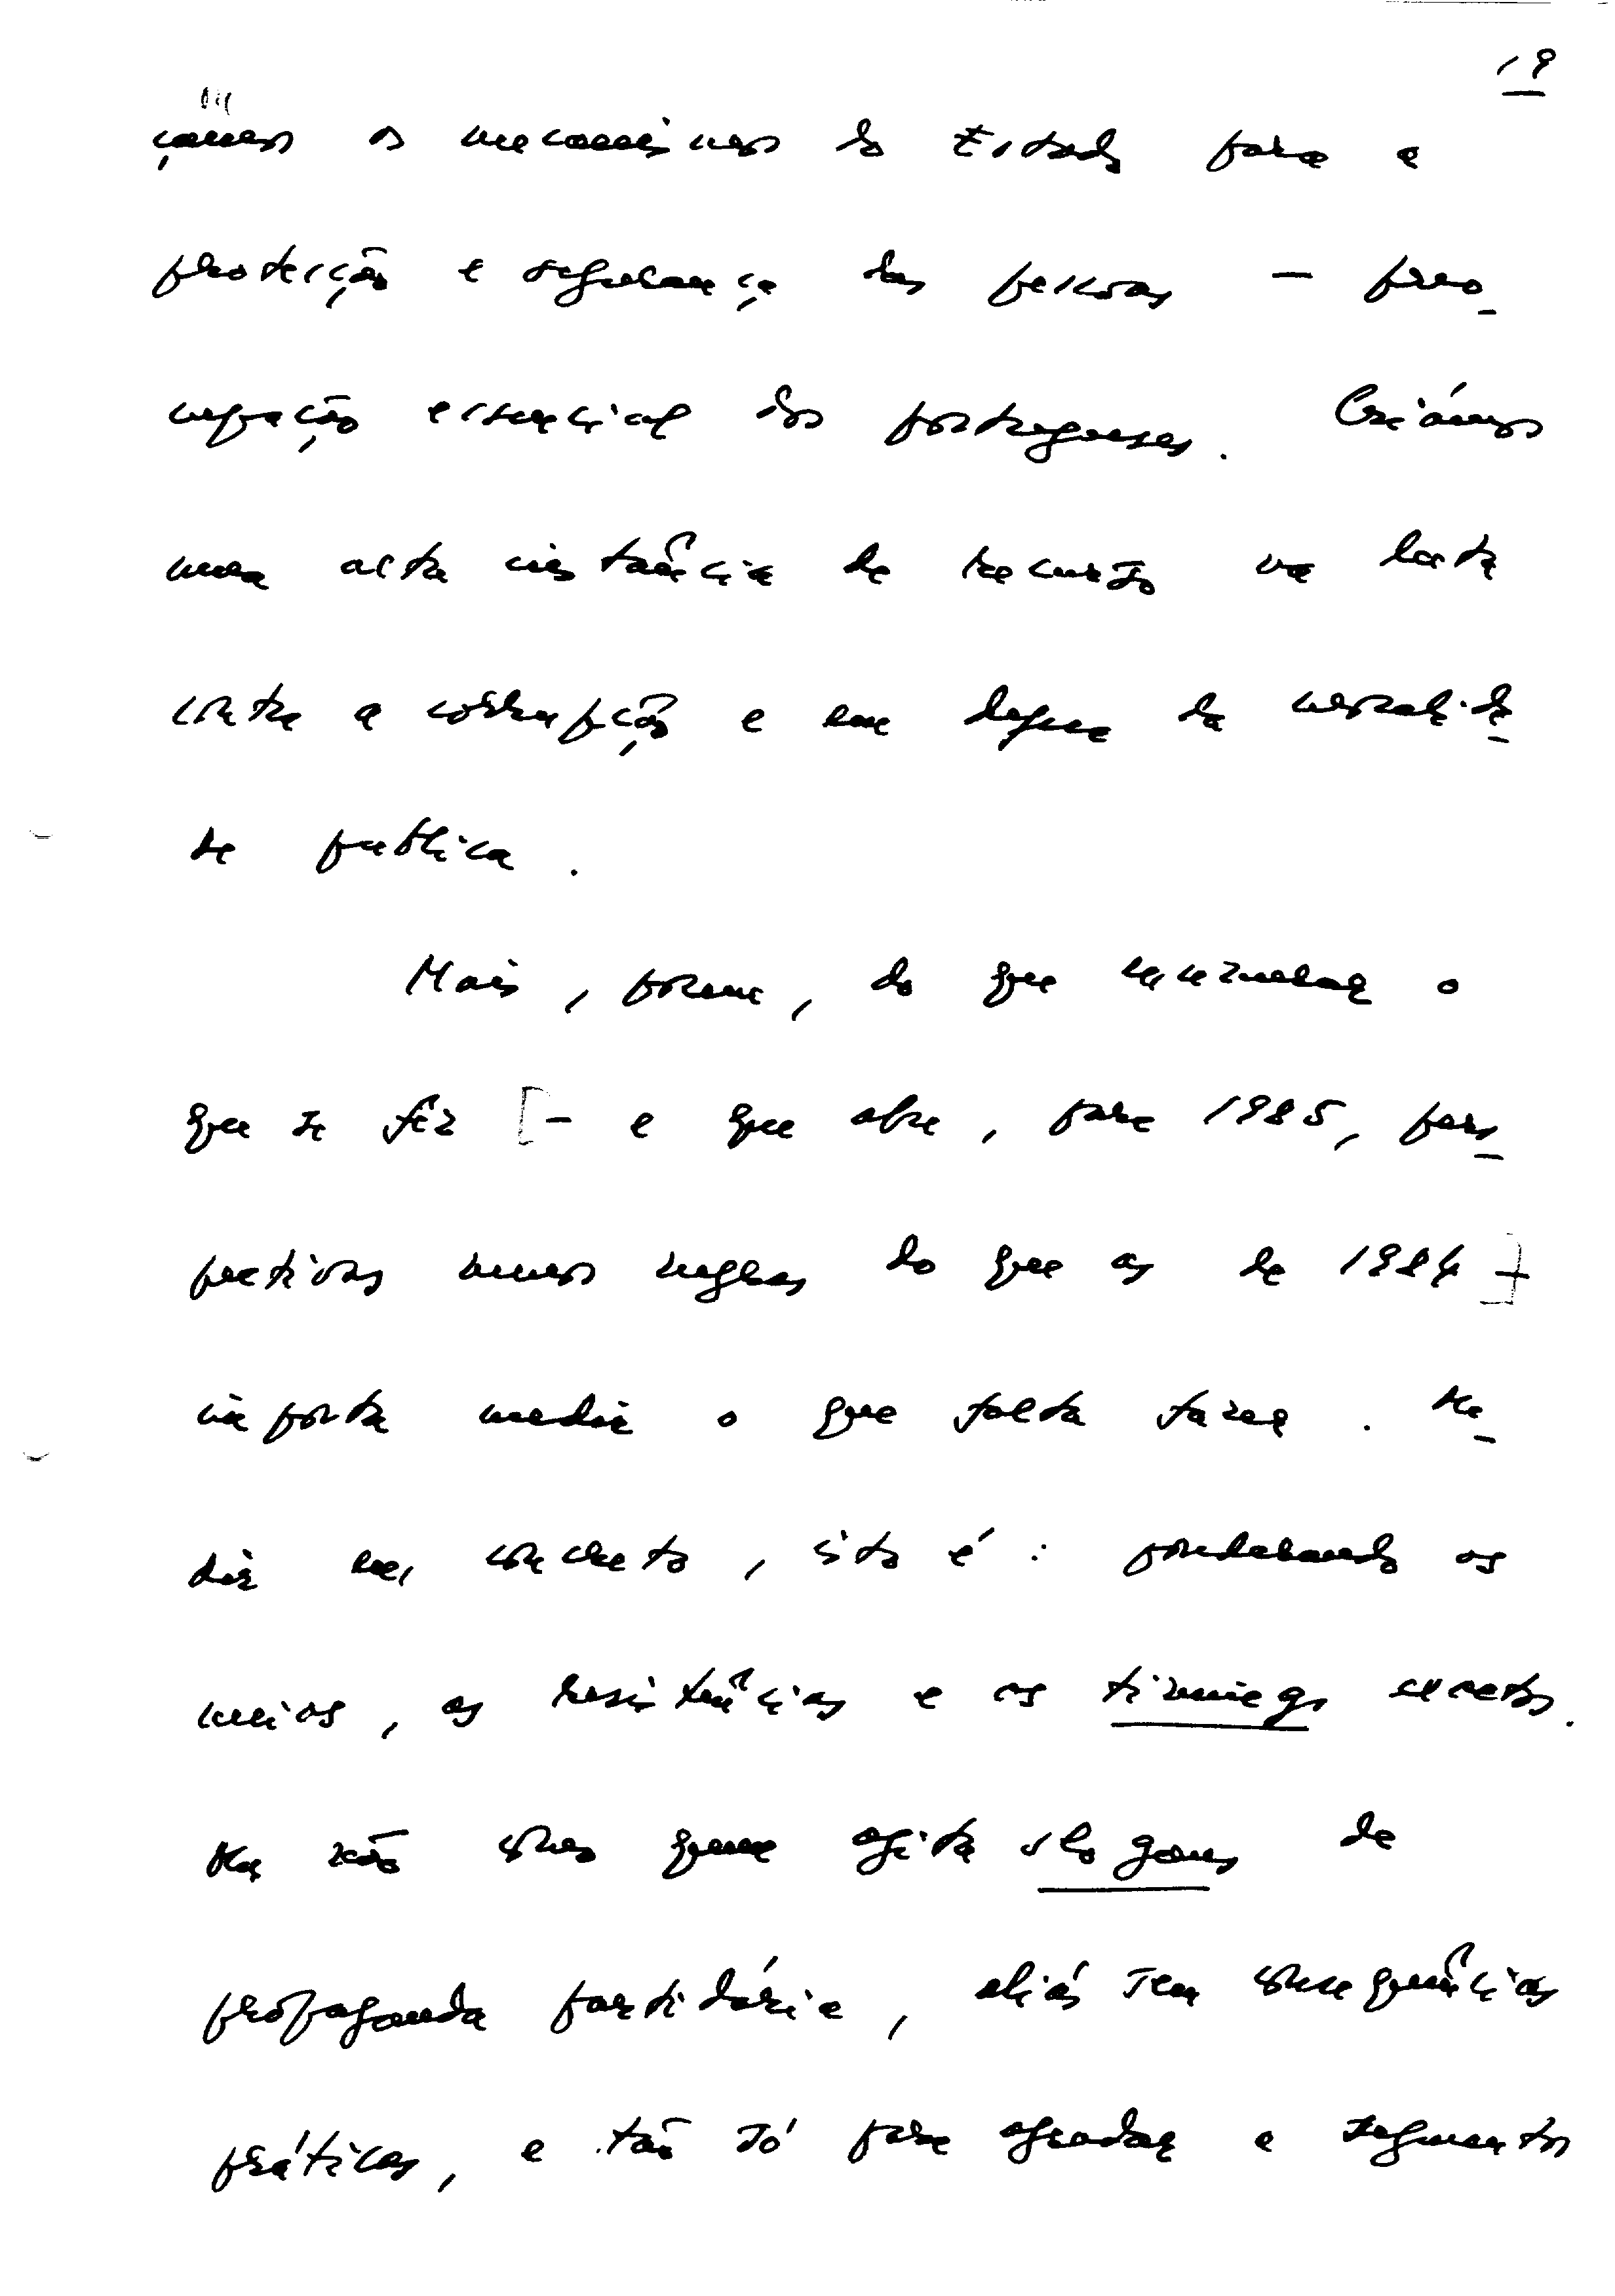 19
çamos os mecanismos do Estado para a
protecção e segurança das pessoas — preo-
cupação essencial dos portugueses. Criámos
uma alta instância de recurso na luta
contra a corrupção e em defesa da moralida-
de publica.
Mais, porem, do que enumerar o
que se fêz [— e que abre, para 1985, pers-
pectivas menos negras do que as de 1984 —]
importa medir o que falta fazer. Me-
dir em concreto, isto é: ponderando os
meios, as resistências e os timings exactos.
Ma não como quem agita slogans de
propaganda partidária, aliás sem consequências
práticas, e tão só para agradar a segmentos